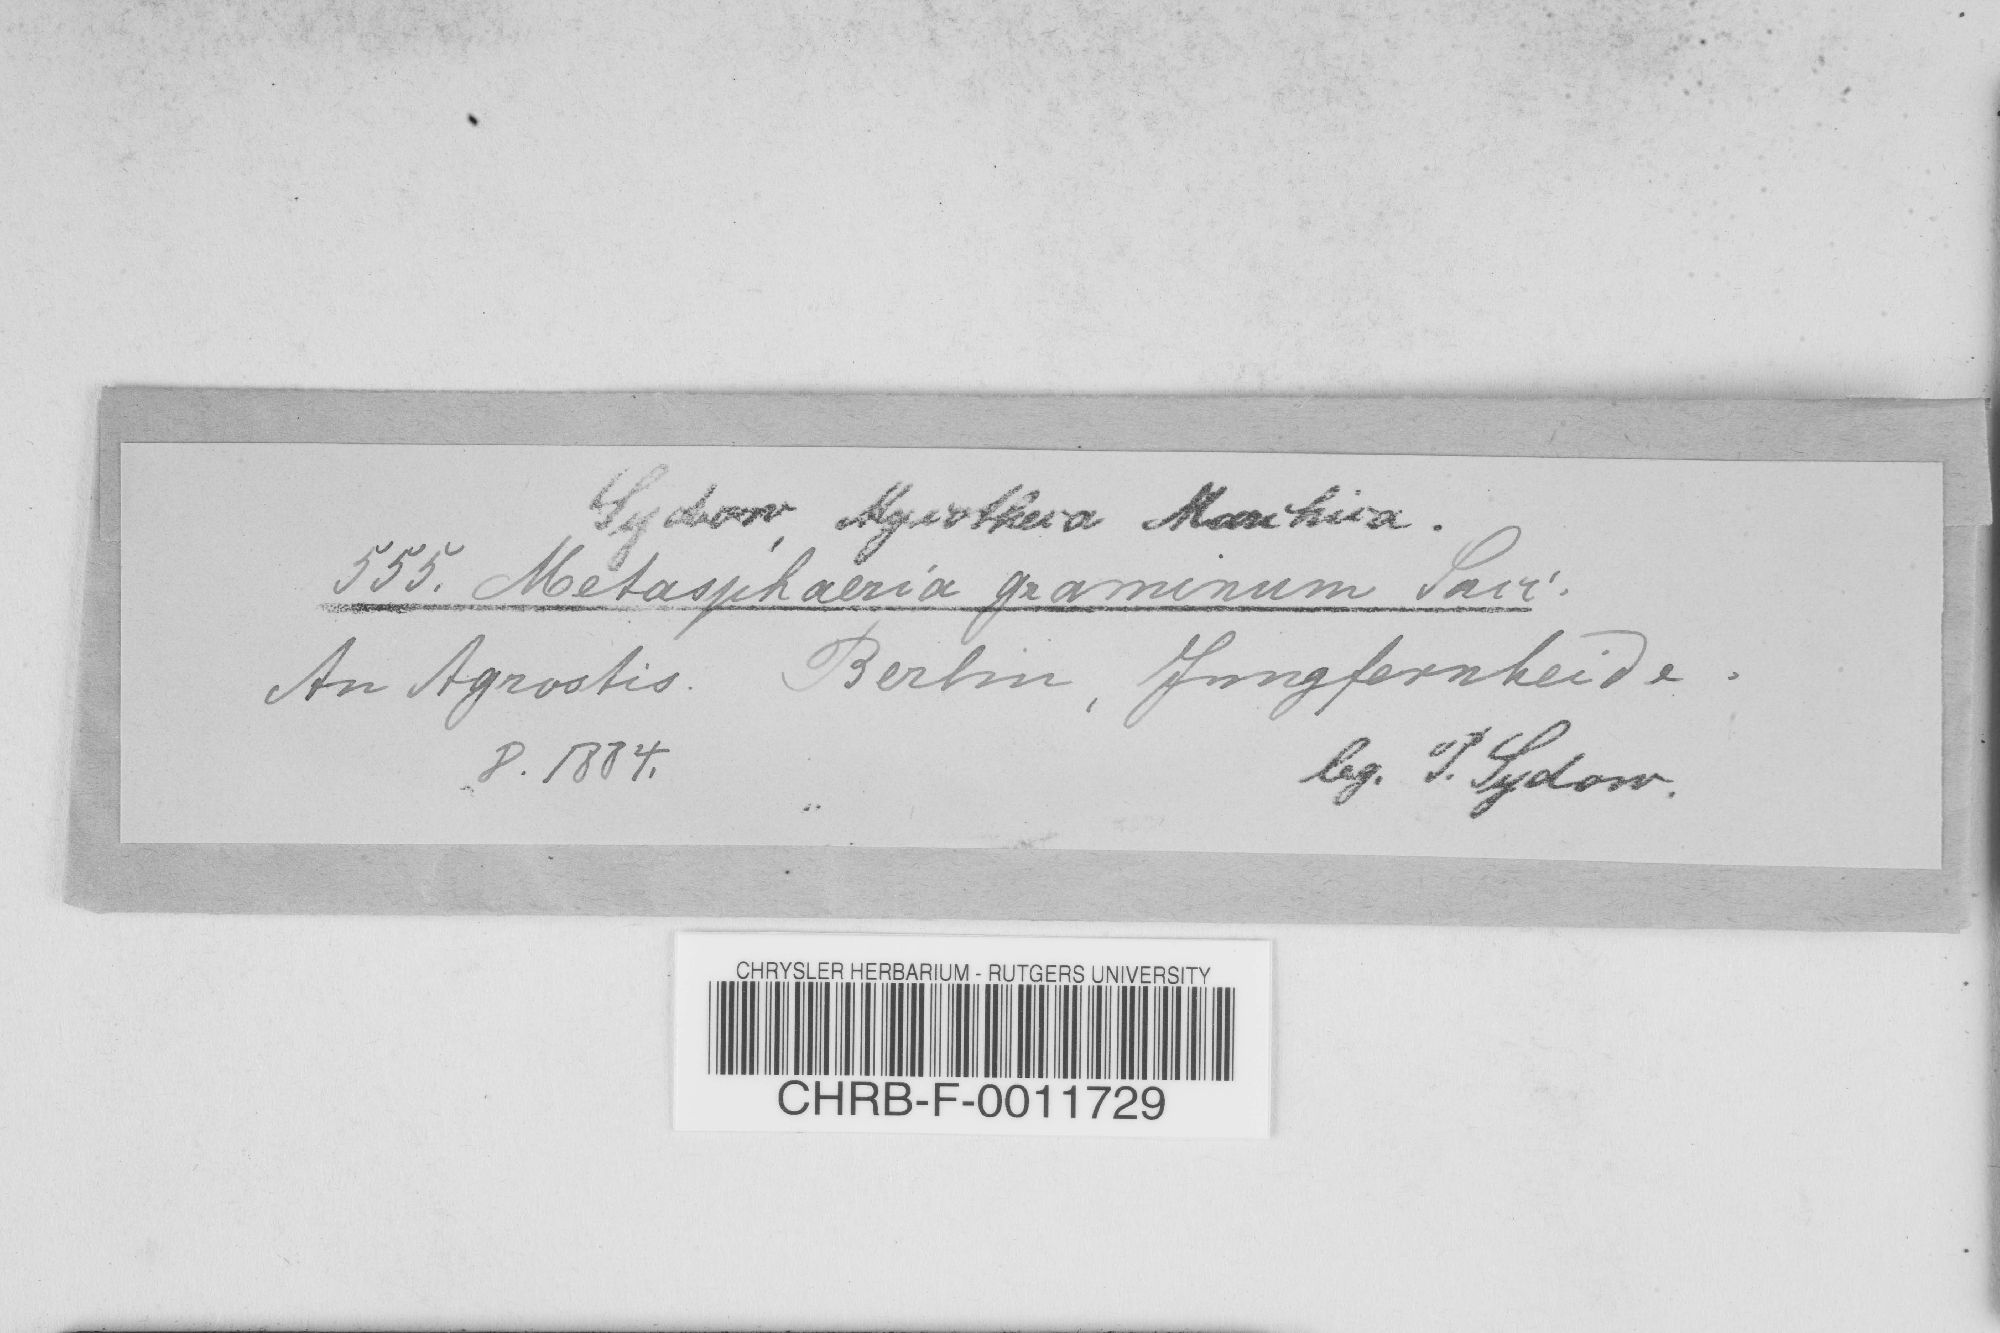 Sydow, Mycotheca Marchica.
555. Metasphaeria graminum Sacc.
An Agrostis. Berlin, Jungfernheide.
8. 1884. leg. P. Sydow.
CHRYSLER HERBARIUM - RUTGERS UNIVERSITY
CHRB-F-0011729